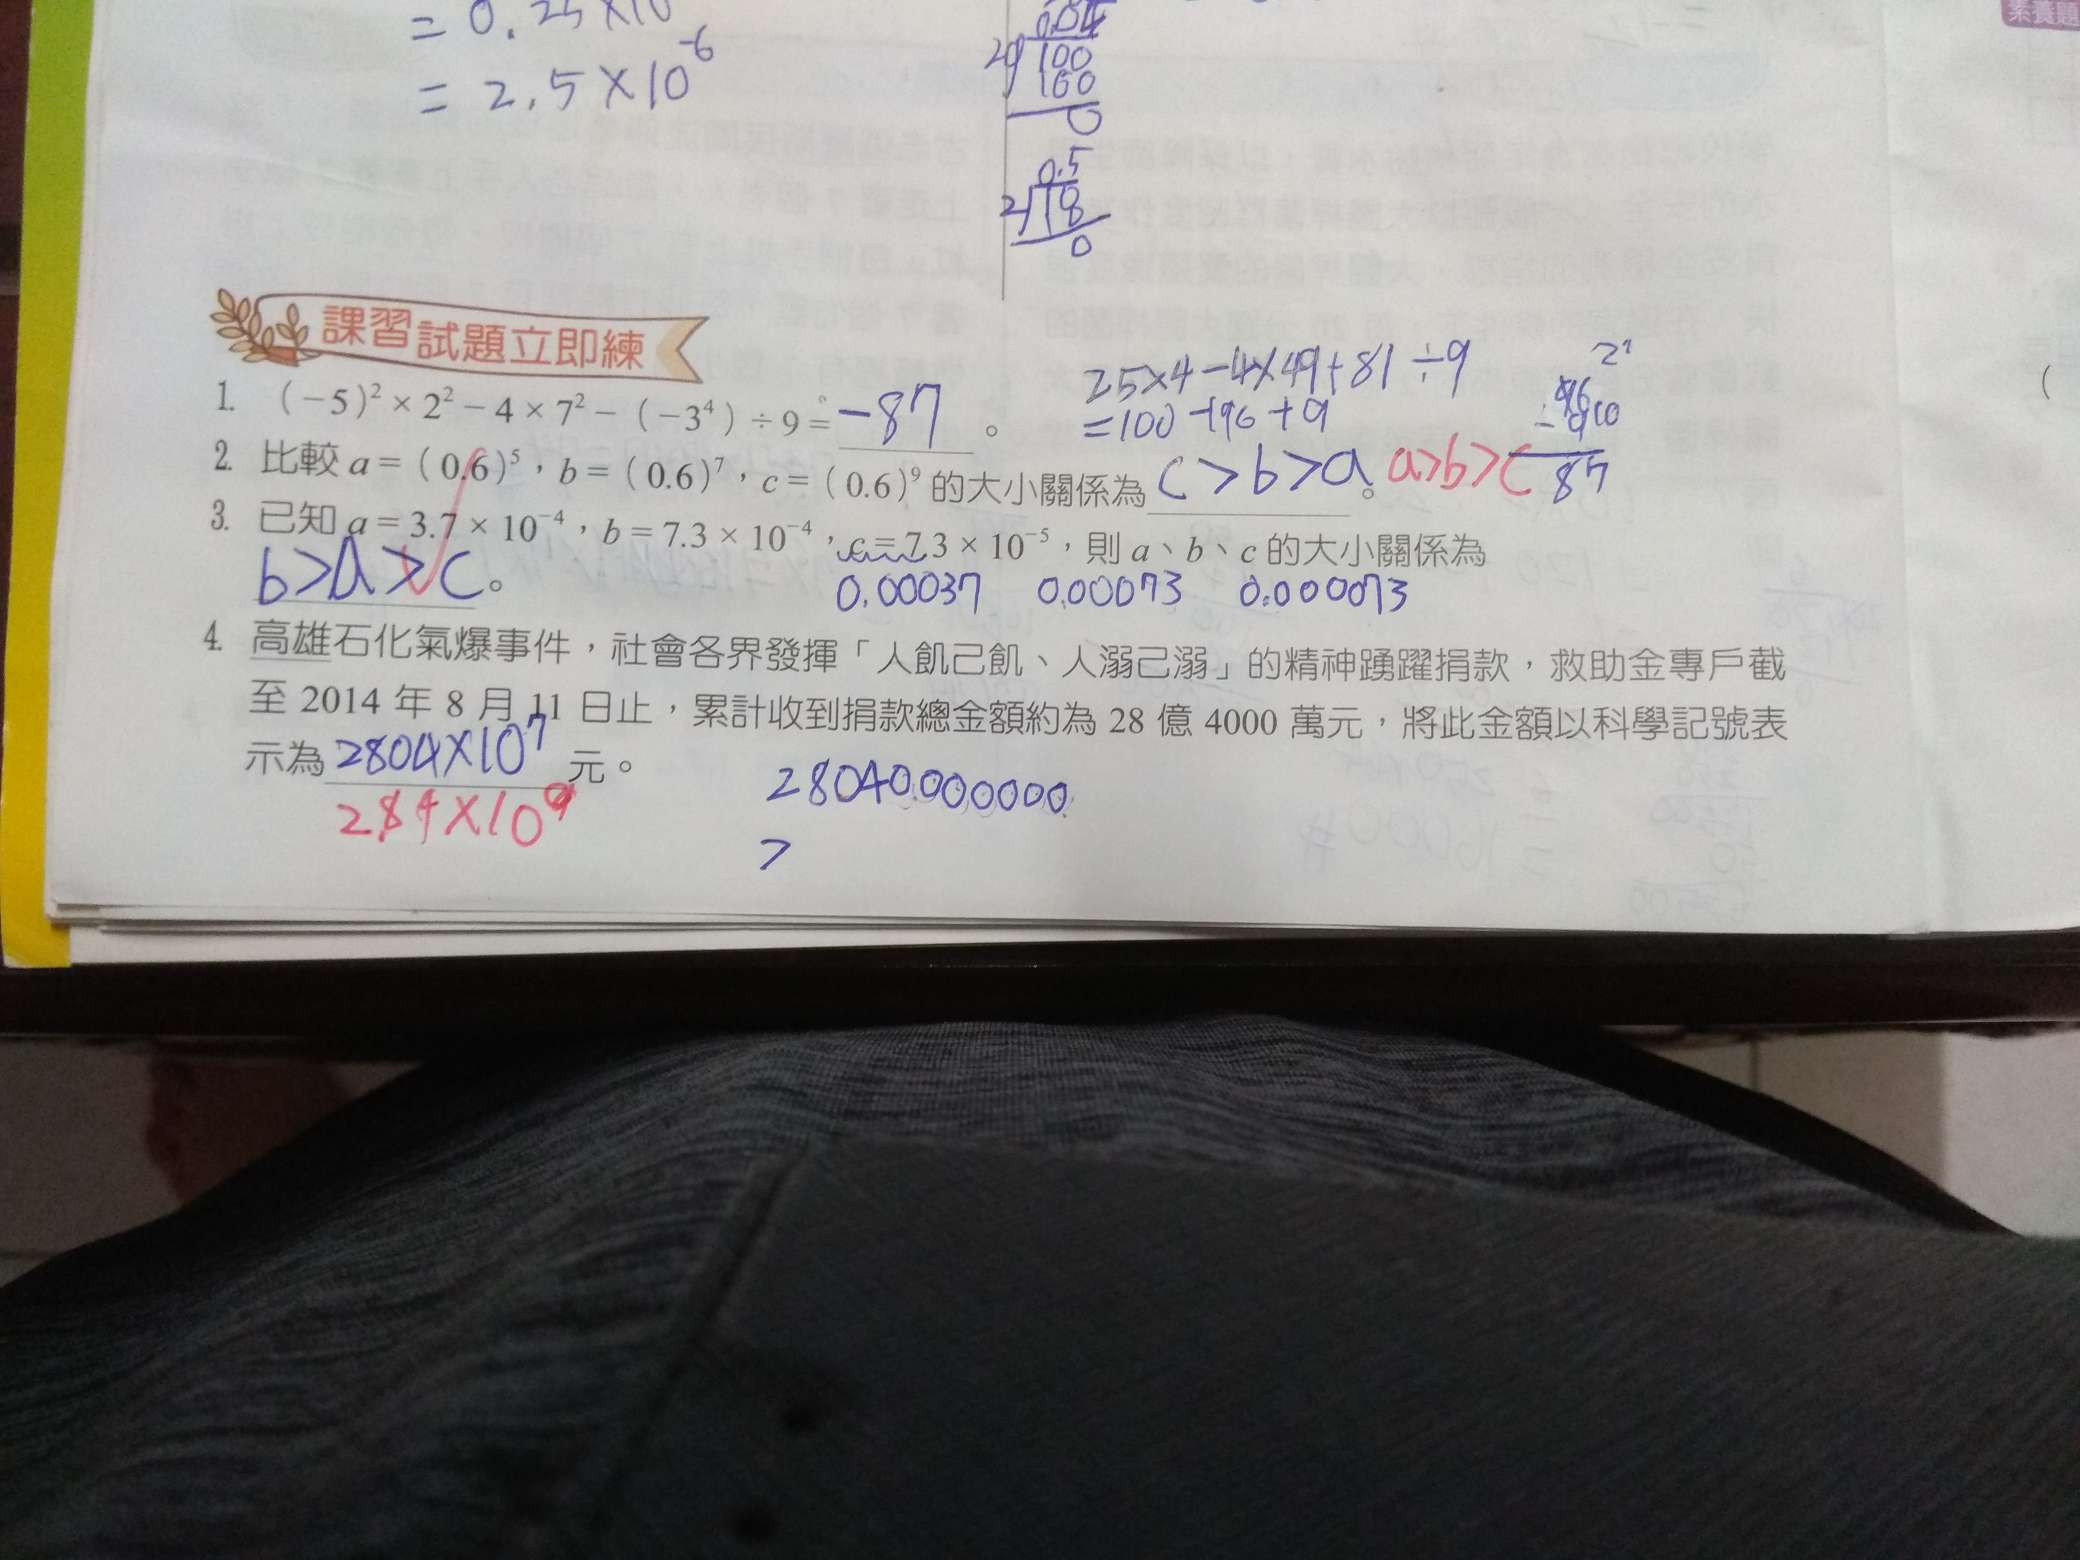 = 0.25×10
= 2.5×10⁻⁶
100
100
0
0.5
2
0
課習試題立即練
1. (−5)² × 2² − 4 × 7² − (−3⁴) ÷ 9 = −87 。
25×4−4×49+81÷9
=100−196+9
2. 比較 a = (0.6)⁵，b = (0.6)⁷，c = (0.6)⁹ 的大小關係為 c>b>a。 a>b>c
87
3. 已知 a = 3.7 × 10⁻⁴，b = 7.3 × 10⁻⁴，c = 7.3 × 10⁻⁵，則 a、b、c 的大小關係為
b>a>c。
0.00037 0.00073 0.000073
4. 高雄石化氣爆事件，社會各界發揮「人飢己飢、人溺己溺」的精神踴躍捐款，救助金專戶截
至 2014 年 8 月 11 日止，累計收到捐款總金額約為 28 億 4000 萬元，將此金額以科學記號表
示為 2804×10⁷ 元。
28040000000
素養題